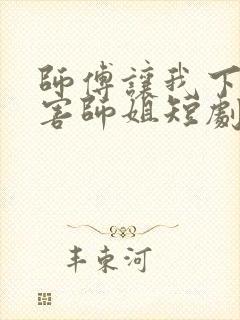 師傅讓我下
害師姐短劇
丰東河